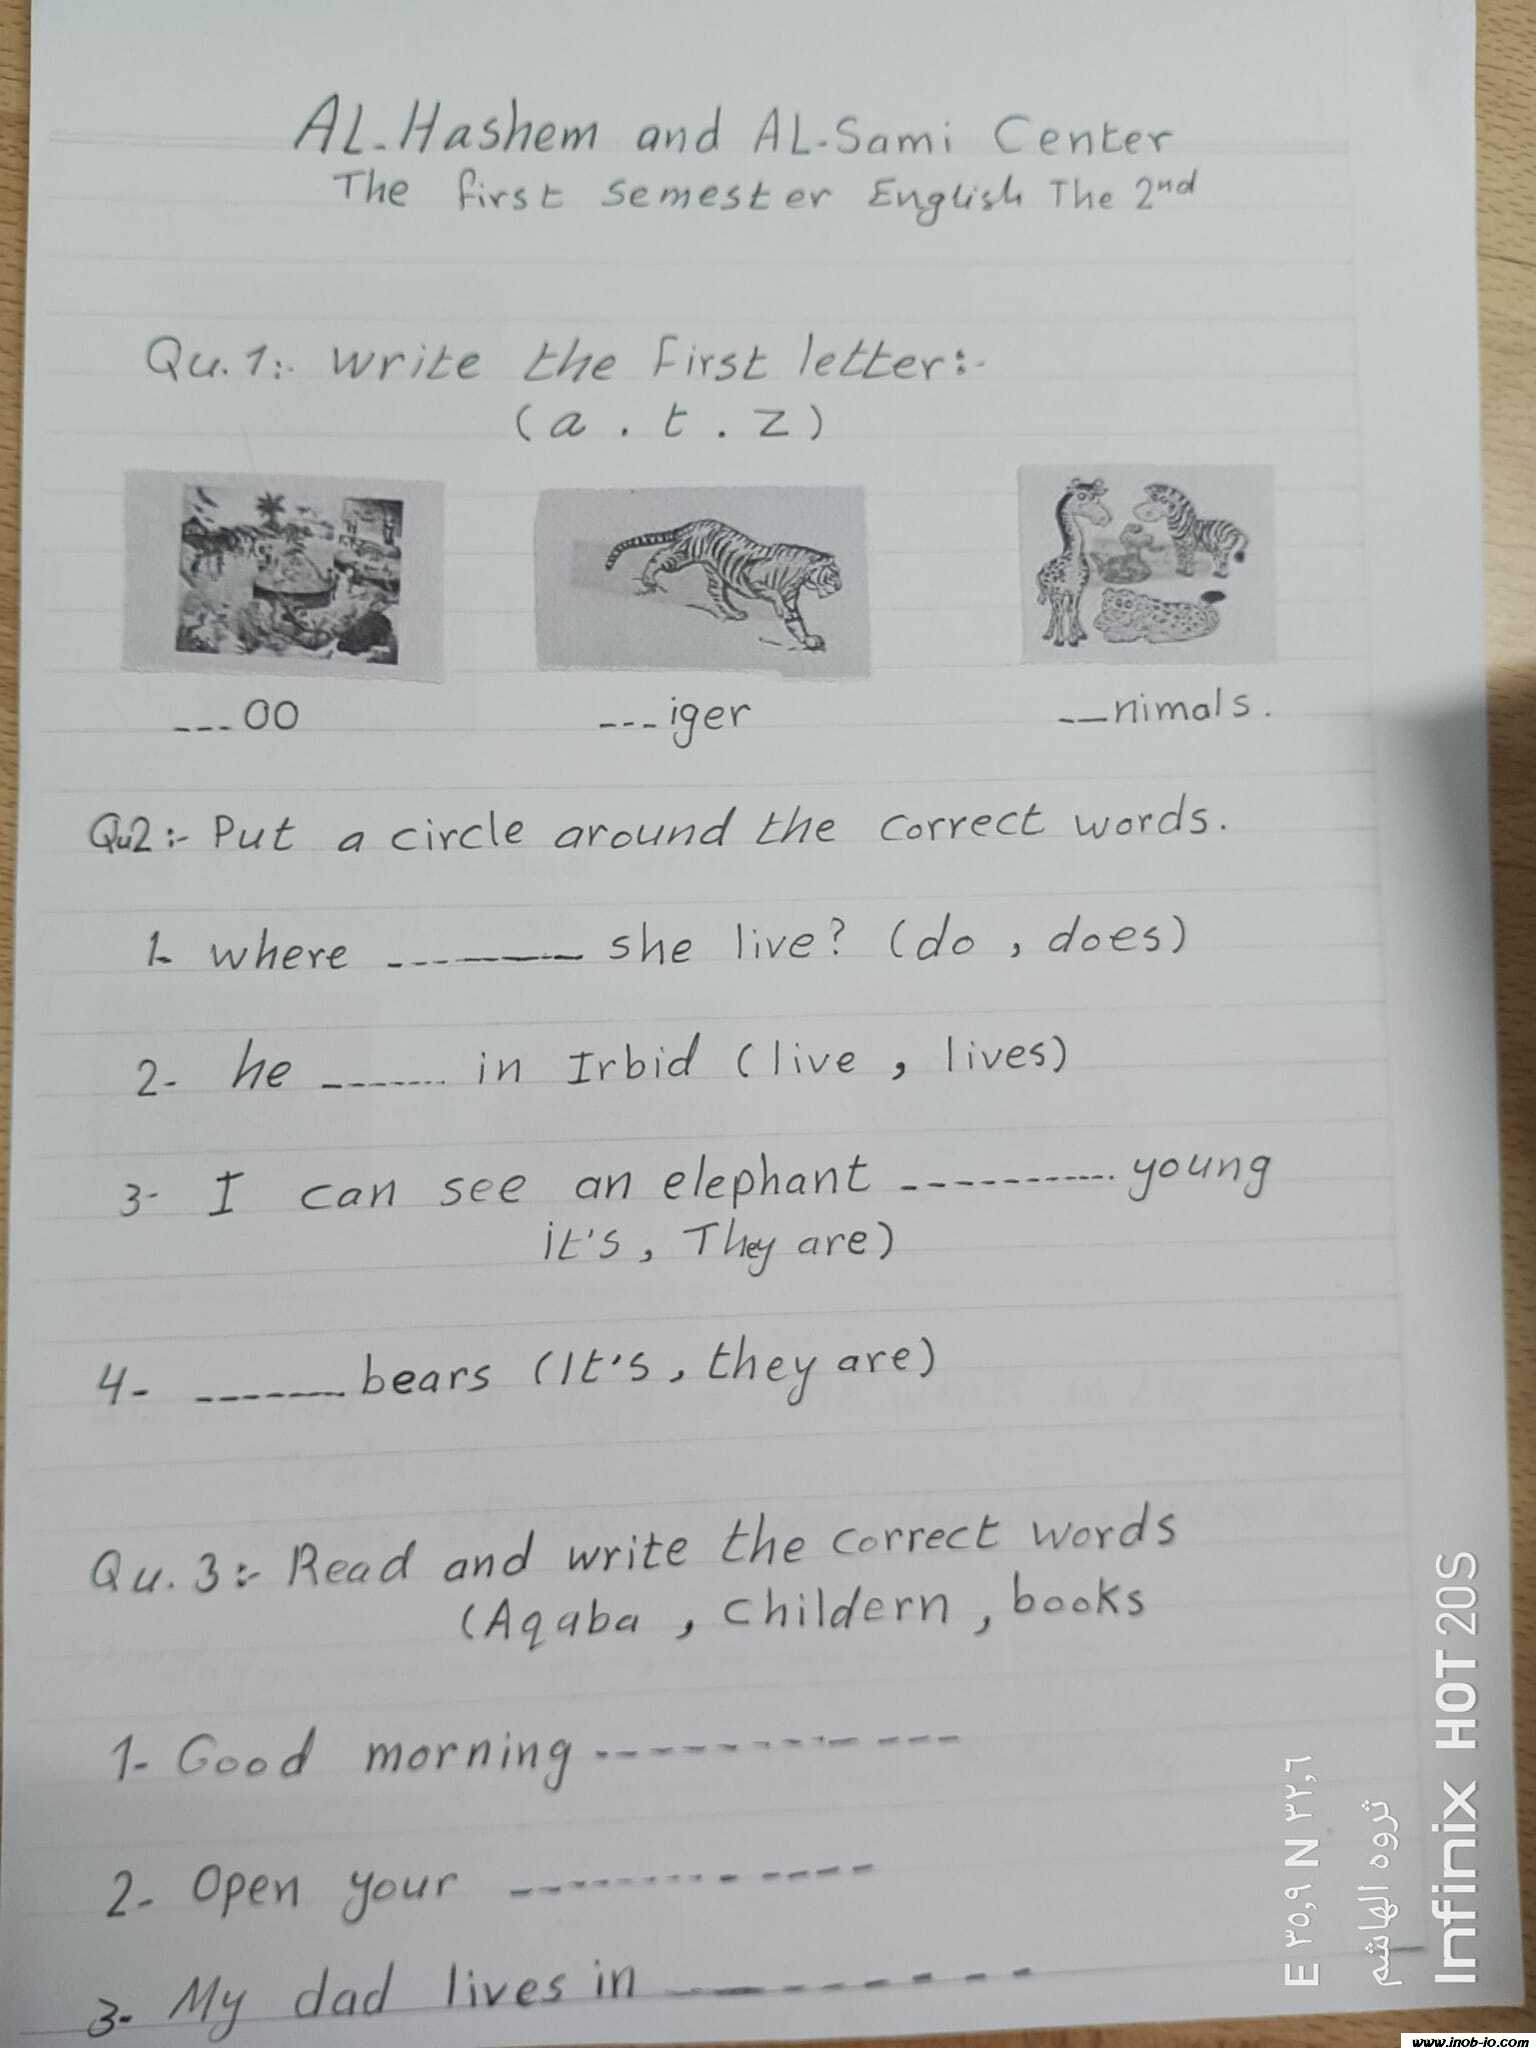 AL-Hashem and AL-Sami Center
The first semester English The 2nd
Qu.1:- write the first letter:-
(a . t . z)
---oo
---iger
---nimals.
Qu2:- Put a circle around the correct words.
1- where ------- she live? (do , does)
2- he ------- in Irbid (live , lives)
3- I can see an elephant ---------- young
it's , They are)
4- ------- bears (It's , they are)
Qu.3:- Read and write the correct words
(Aqaba , childern , books
1- Good morning ------------
2- Open your ------------
3- My dad lives in ----------
E ٣٥,٩ N ٣٢,٦
ثروه الهاشم
Infinix HOT 20S
www.inob-jo.com